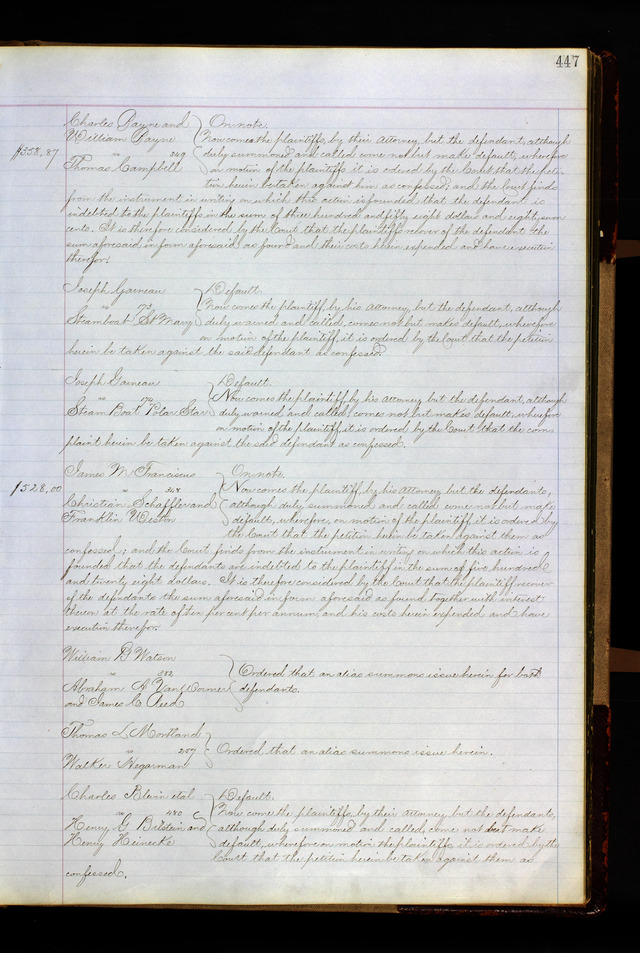 447
Charles Payne and } On note.
William Payne } Now comes the plaintiffs, by their Attorney, but the defendant, although
$358,87 vs 249 } duly summoned and called come not but make default, wherefore
Thomas Campbell } on motion of the plaintiffs it is ordered by the Court that the peti-
tion herein be taken against him as confessed; and the Court finds
from the instrument in writing on which this action is founded that the defendant is
indebted to the plaintiffs in the sum of three hundred and fifty eight dollars and eighty seven
cents. It is therefore considered by the Court that the plaintiffs recover of the defendant the
sum aforesaid in form aforesaid as found and their costs herein expended and have execution
therefor.
Joseph Garneau } Default.
vs 73 } Now comes the plaintiff by his Attorney, but the defendant, although
Steamboat St Mary } duly warned and called, comes not but makes default, wherefore
on motion of the plaintiff, it is ordered by the Court that the petition
herein be taken against the said defendant as confessed.
Joseph Garneau } Default.
vs } Now comes the plaintiff by his Attorney but the defendant, although
Steam Boat Polar Star } duly warned and called, comes not but makes default, wherefore
on motion of the plaintiff, it is ordered by the Court, that the com
plaint herein be taken against the said defendant as confessed.
James M Franciscus } On note.
$528,00 vs } Now comes the plaintiff, by his Attorney but the defendants,
Christian Schaffler and } although duly summoned and called come not but make
Franklin Weston } default, wherefore, on motion of the plaintiff it is ordered by
the Court that the petition herein be taken against them as
confessed; and the Court finds from the instrument in writing on which this action is
founded that the defendants are indebted to the plaintiff in the sum of five hundred
and twenty eight dollars. It is therefore considered by the Court that the plaintiff recover
of the defendants the sum aforesaid in form aforesaid as found, together with interest
thereon at the rate of ten per cent per annum, and his costs herein expended and have
execution therefor.
William B Watson
vs 382 } Ordered that an alias summons issue herein for both
Abraham A Van Corner } defendants.
and James C Reed
Thomas L Mortland
vs 257 } Ordered that an alias summons issue herein.
Walker Hegarman
Charles Blein et al } Default.
vs 480 } Now come the plaintiffs, by their Attorney but the defendants,
Henry G Bilstein and } although duly summoned and called, come not but make
Henry Heinecke } default, wherefore on motion the plaintiffs it is ordered by the
Court that the petition herein be taken against them as
confessed.